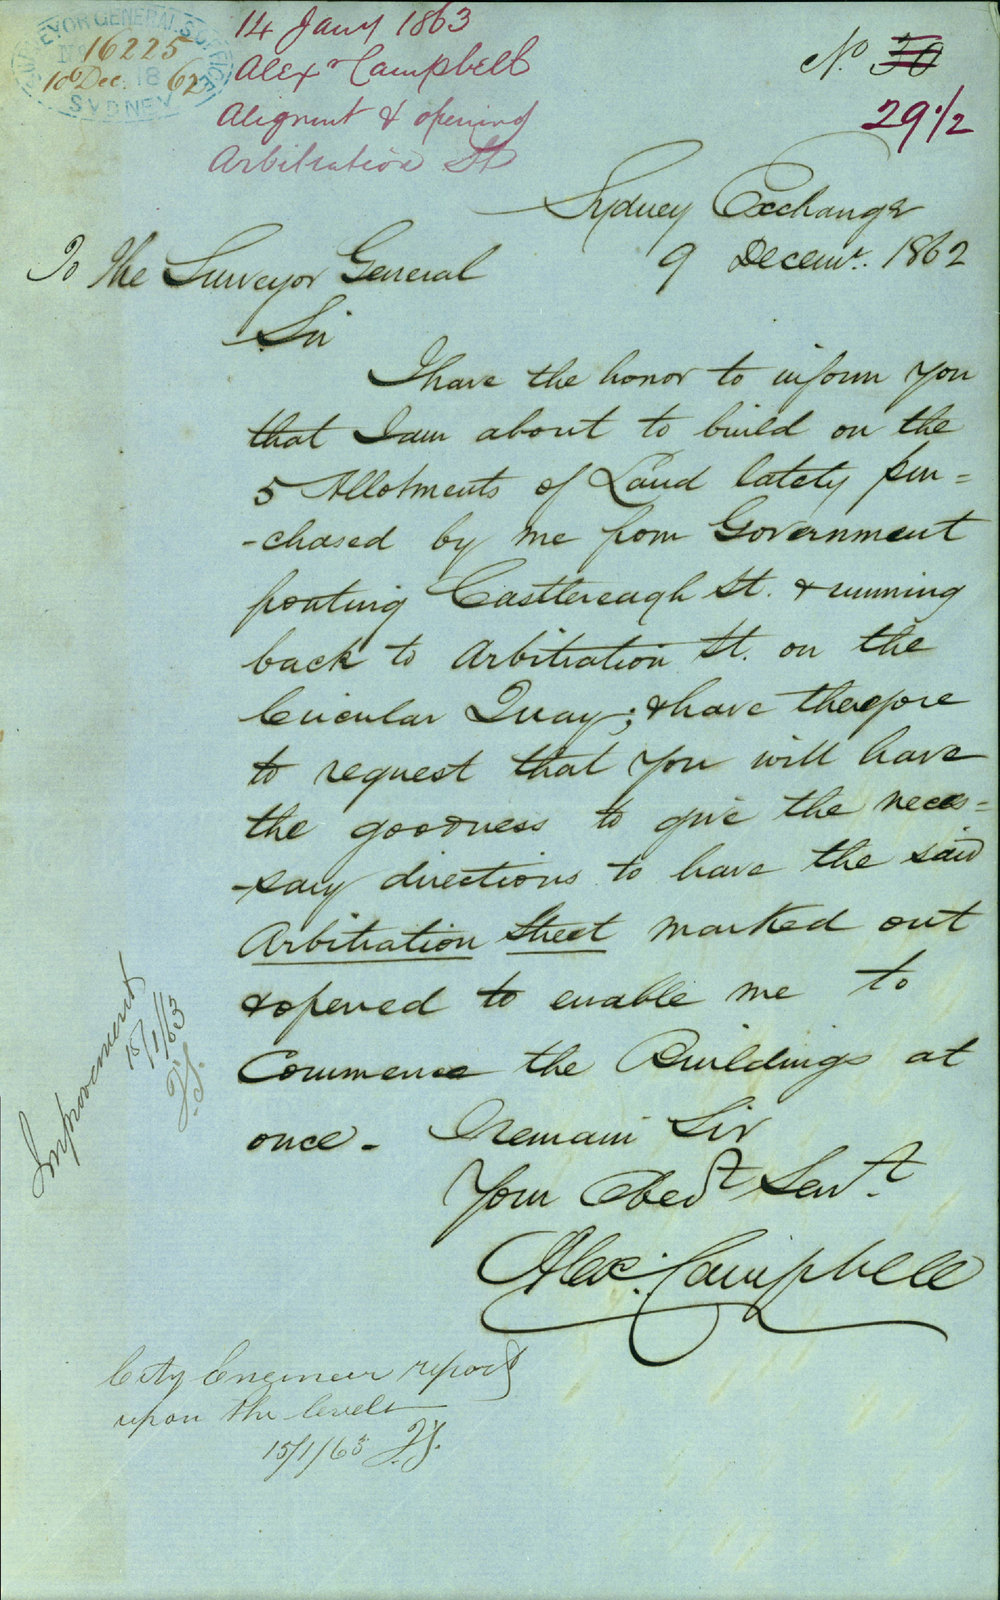 SURVEYOR GENERAL'S OFFICE
No 16225
10 Dec. 1862
SYDNEY
14 Jany 1863
Alexr Campbell
Aligment & opening
Arbitration St
No. 30
29 1/2
Sydney Exchange
9 Decemr. 1862
To The Surveyor General
Sir
I have the honor to inform you
that I am about to build on the
5 Allotments of Land lately pur=
-chased by me from Government
fronting Castlereagh St. & running
back to Arbitration St. on the
Circular Quay; & have therefore
to request that you will have
the goodness to give the neces=
-sary directions to have the said
Arbitration Street marked out
& opened to enable me to
Commence the Buildings at
once - I remain Sir
Your Obedt Servt.
Alex: Campbell
Improvement
15/1/63
City Engineer report
upon the levels
15/1/63